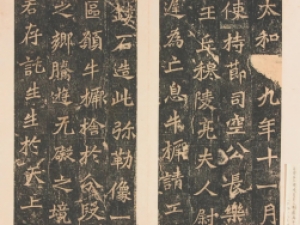 太和十九年十一月
使持節司空公長樂
王丘穆陵亮夫人尉
遲為亡息牛橛請工
鏤石造此弥勒像一
區願牛橛捨於分段
之鄉騰遊无礙之境
若存託生生於天上